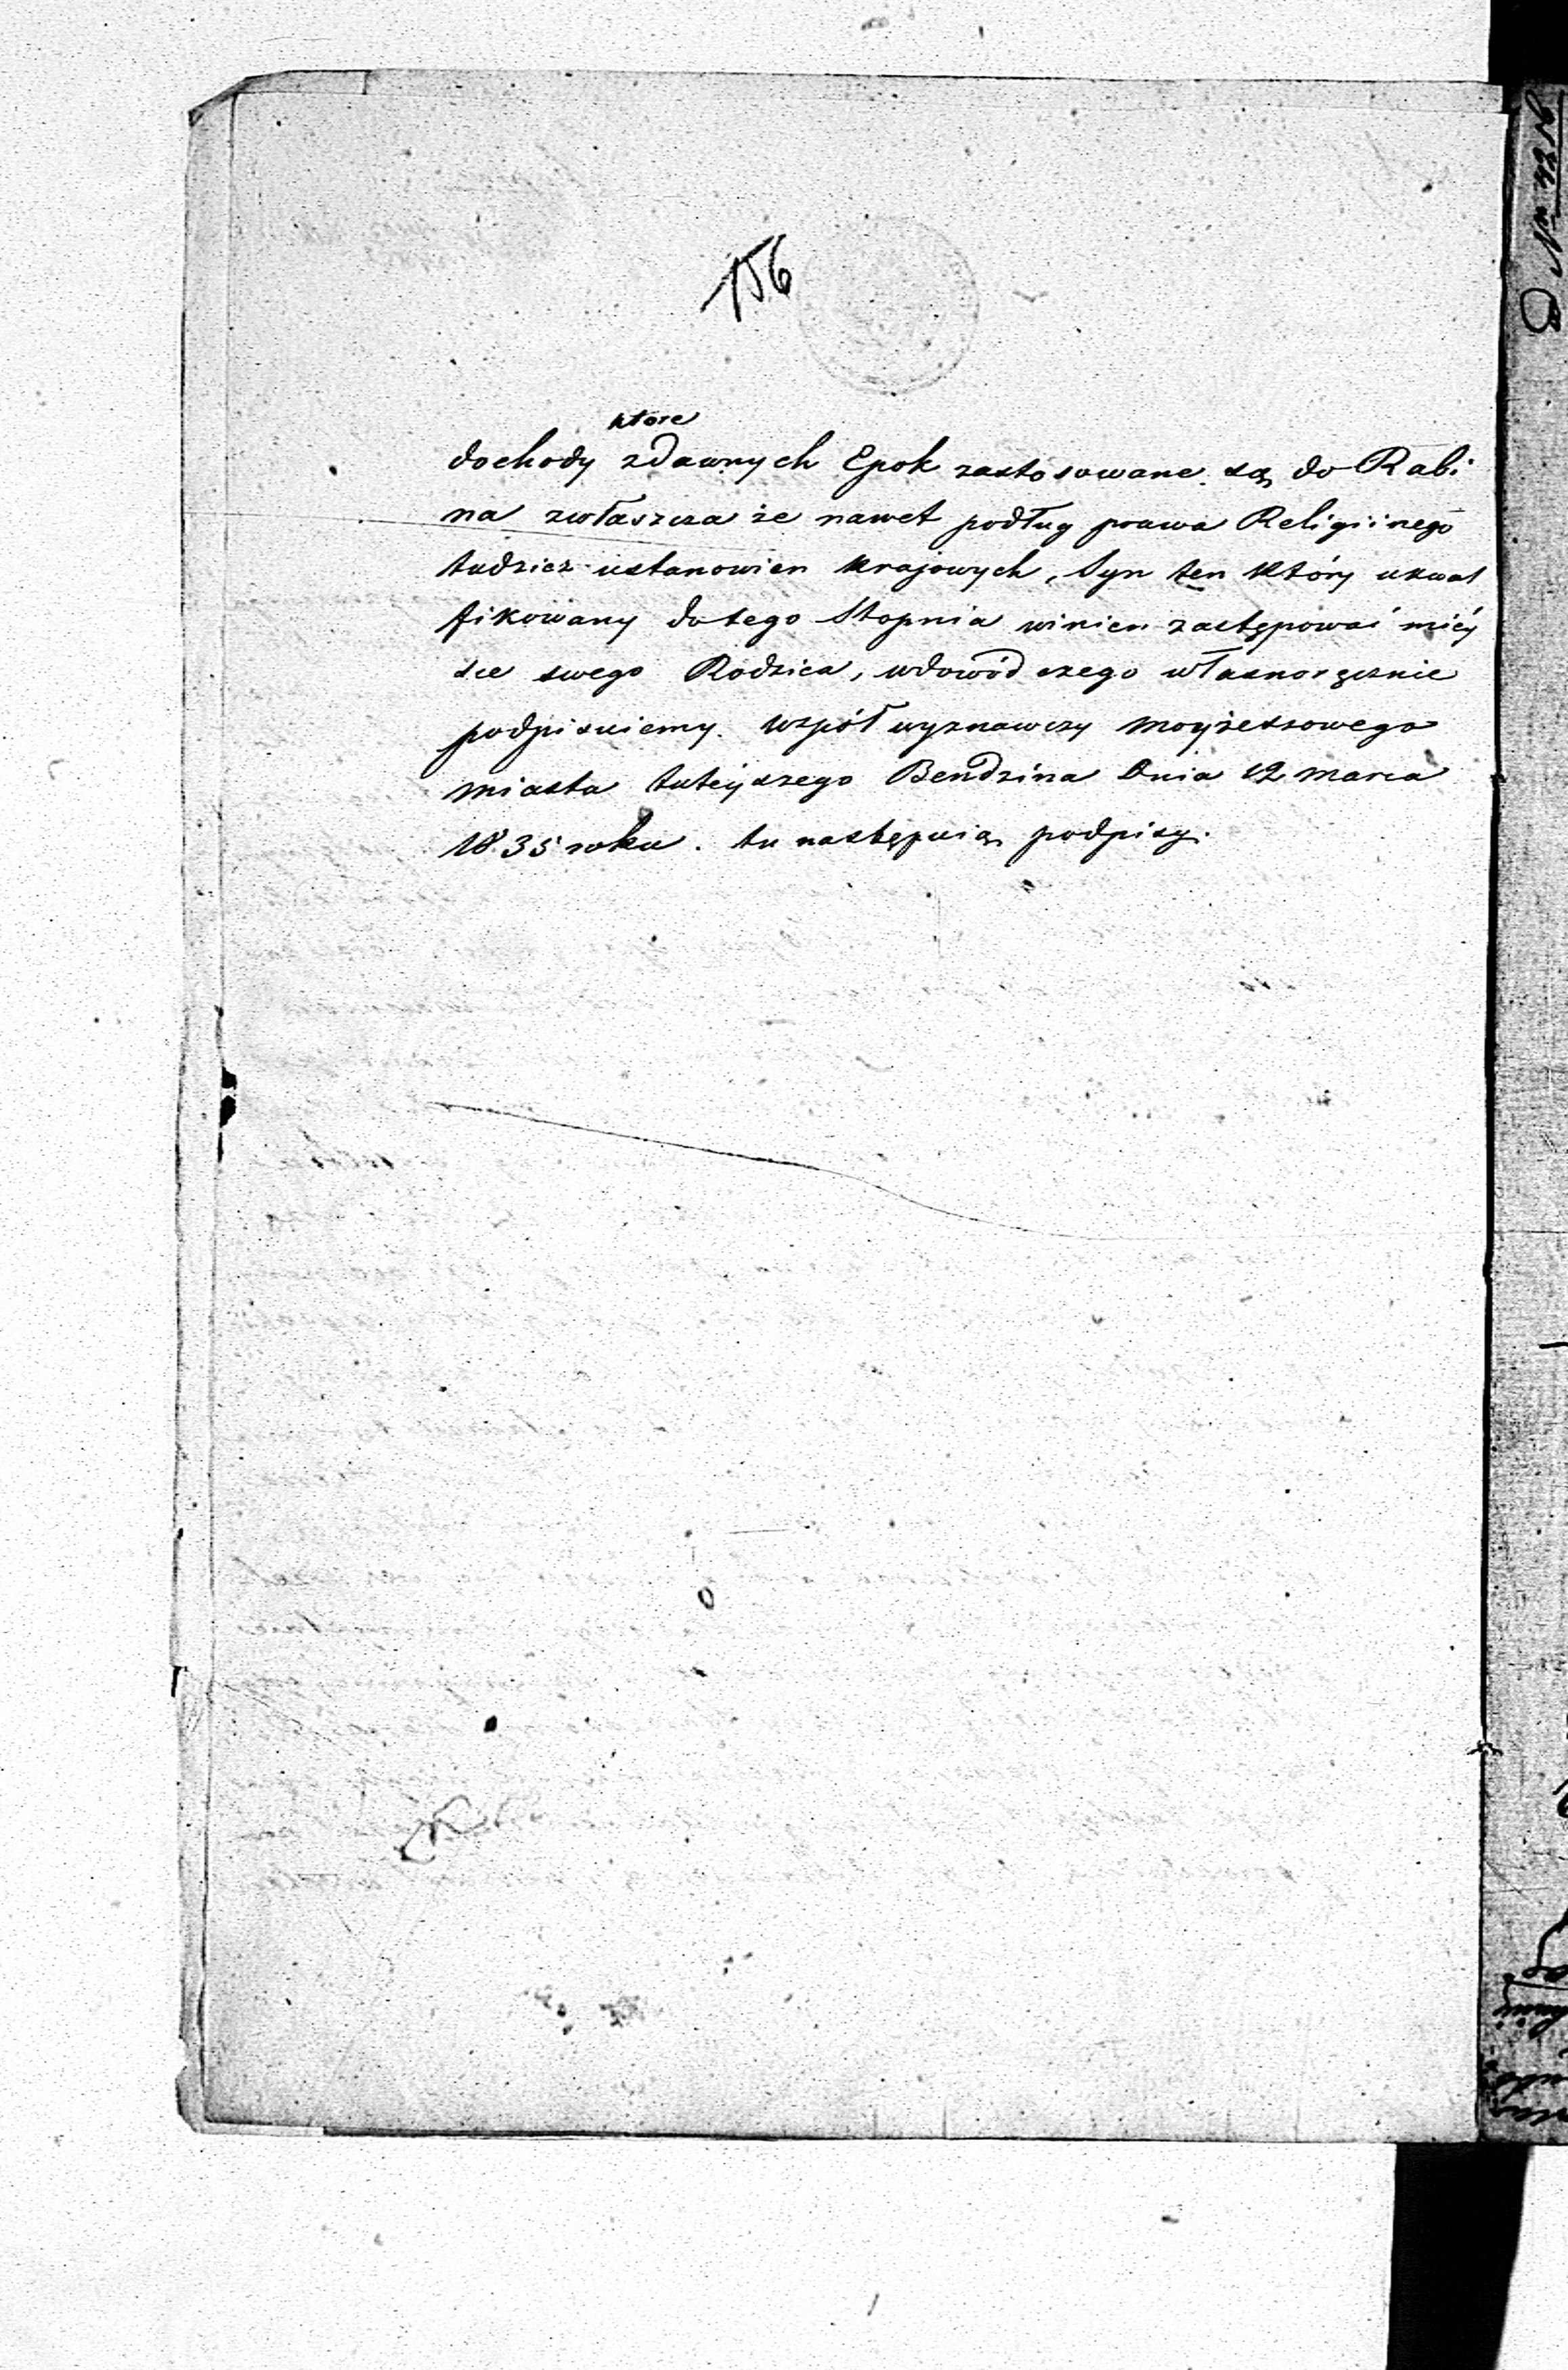 156
które
dochody zdawnych Epok zastosowane są do Rabi
na zwłaszcza że nawet podług prawa Religiinego
tudzież ustanowien krajowych, Syn ten który ukwal
fikowany do tego Stopnia winien zastępować miéy
sce swego Rodzica, wdowód czego własnoręcznie
podpisuiemy. Współwyznawczy Moyżeszowego
miasta tuteyszego Bendzina Dnia 12 Marca
1835 roku. tu następuią podpisy.